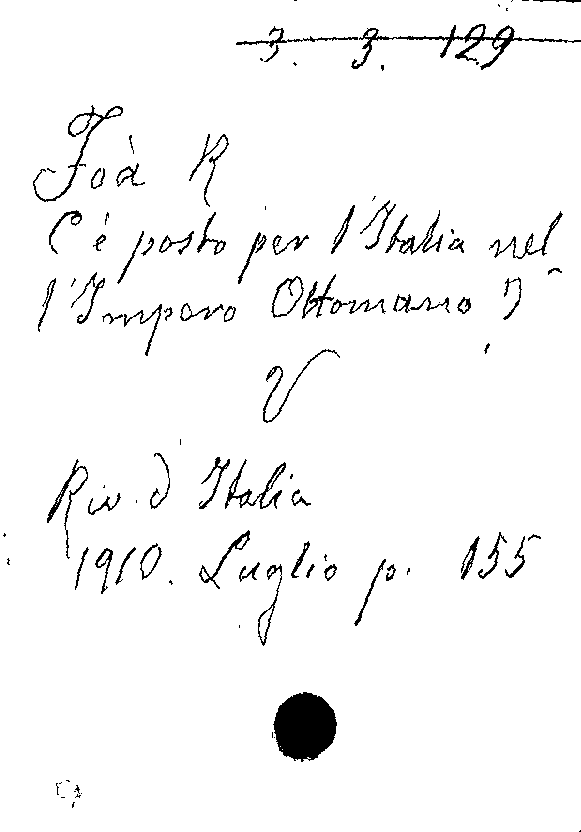 3. 3. 129
Foà R
C'è posto per l'Italia nel
l'Impero Ottomano?
V
Riv. d'Italia
1910. Luglio p. 155